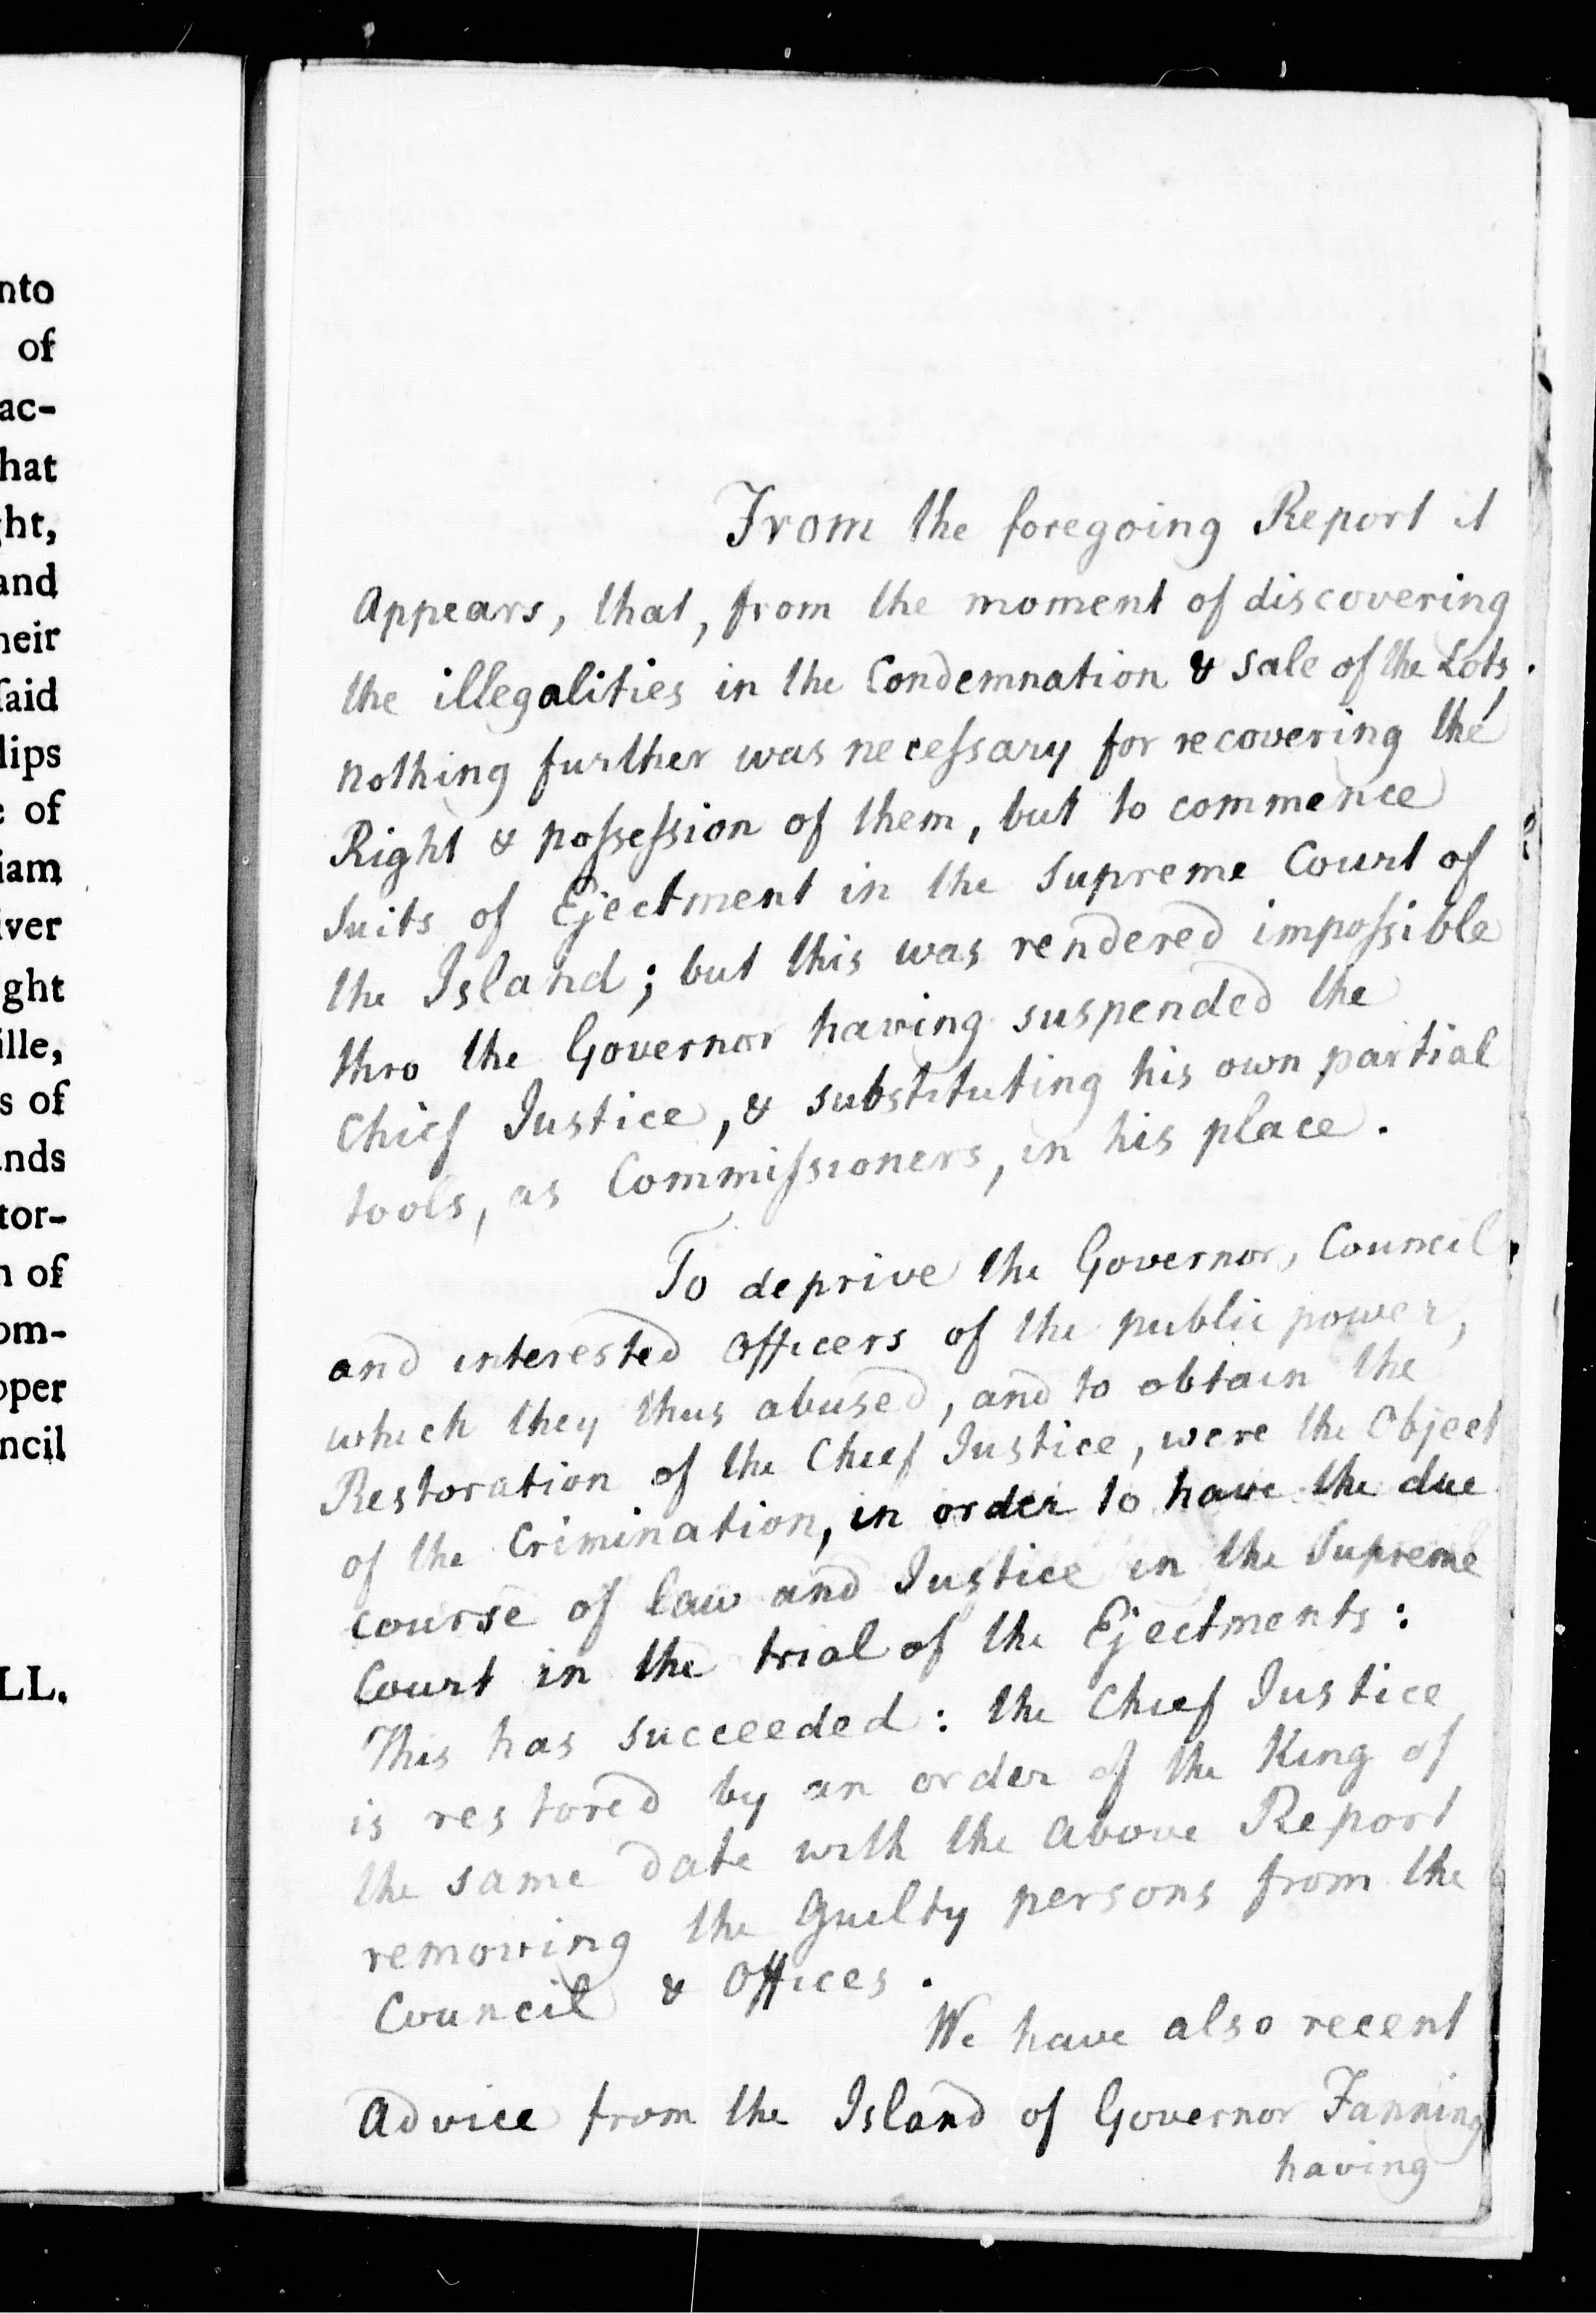 nto
of
ac-
hat
ght,
and
heir
ſaid
lips
of
iam
iver
ght
ille,
s of
ands
tor-
n of
om-
oper
ncil
LL.
From the foregoing Report it
Appears, that, from the moment of discovering
the illegalities in the Condemnation & sale of the Lots,
nothing further was neceſsary for recovering the
Right & poſseſsion of them, but to commence
Suits of Ejectment in the Supreme Court of
the Island; but this was rendered impoſsible
thro the Governor having suspended the
Chief Justice, & substituting his own partial
tools, as Commiſsioners, in his place.
To deprive the Governor, Council
and interested Officers of the public power,
which they thus abused, and to obtain the
Restoration of the Chief Justice, were the Object
of the Crimination, in order to have the due
course of law and Justice in the Supreme
Court in the trial of the Ejectments:
This has succeeded: the Chief Justice
is restored by an order of the King of
the same date with the above Report
removing the Guilty persons from the
Council & Offices.
We have also recent
Advice from the Island of Governor Fanning
having